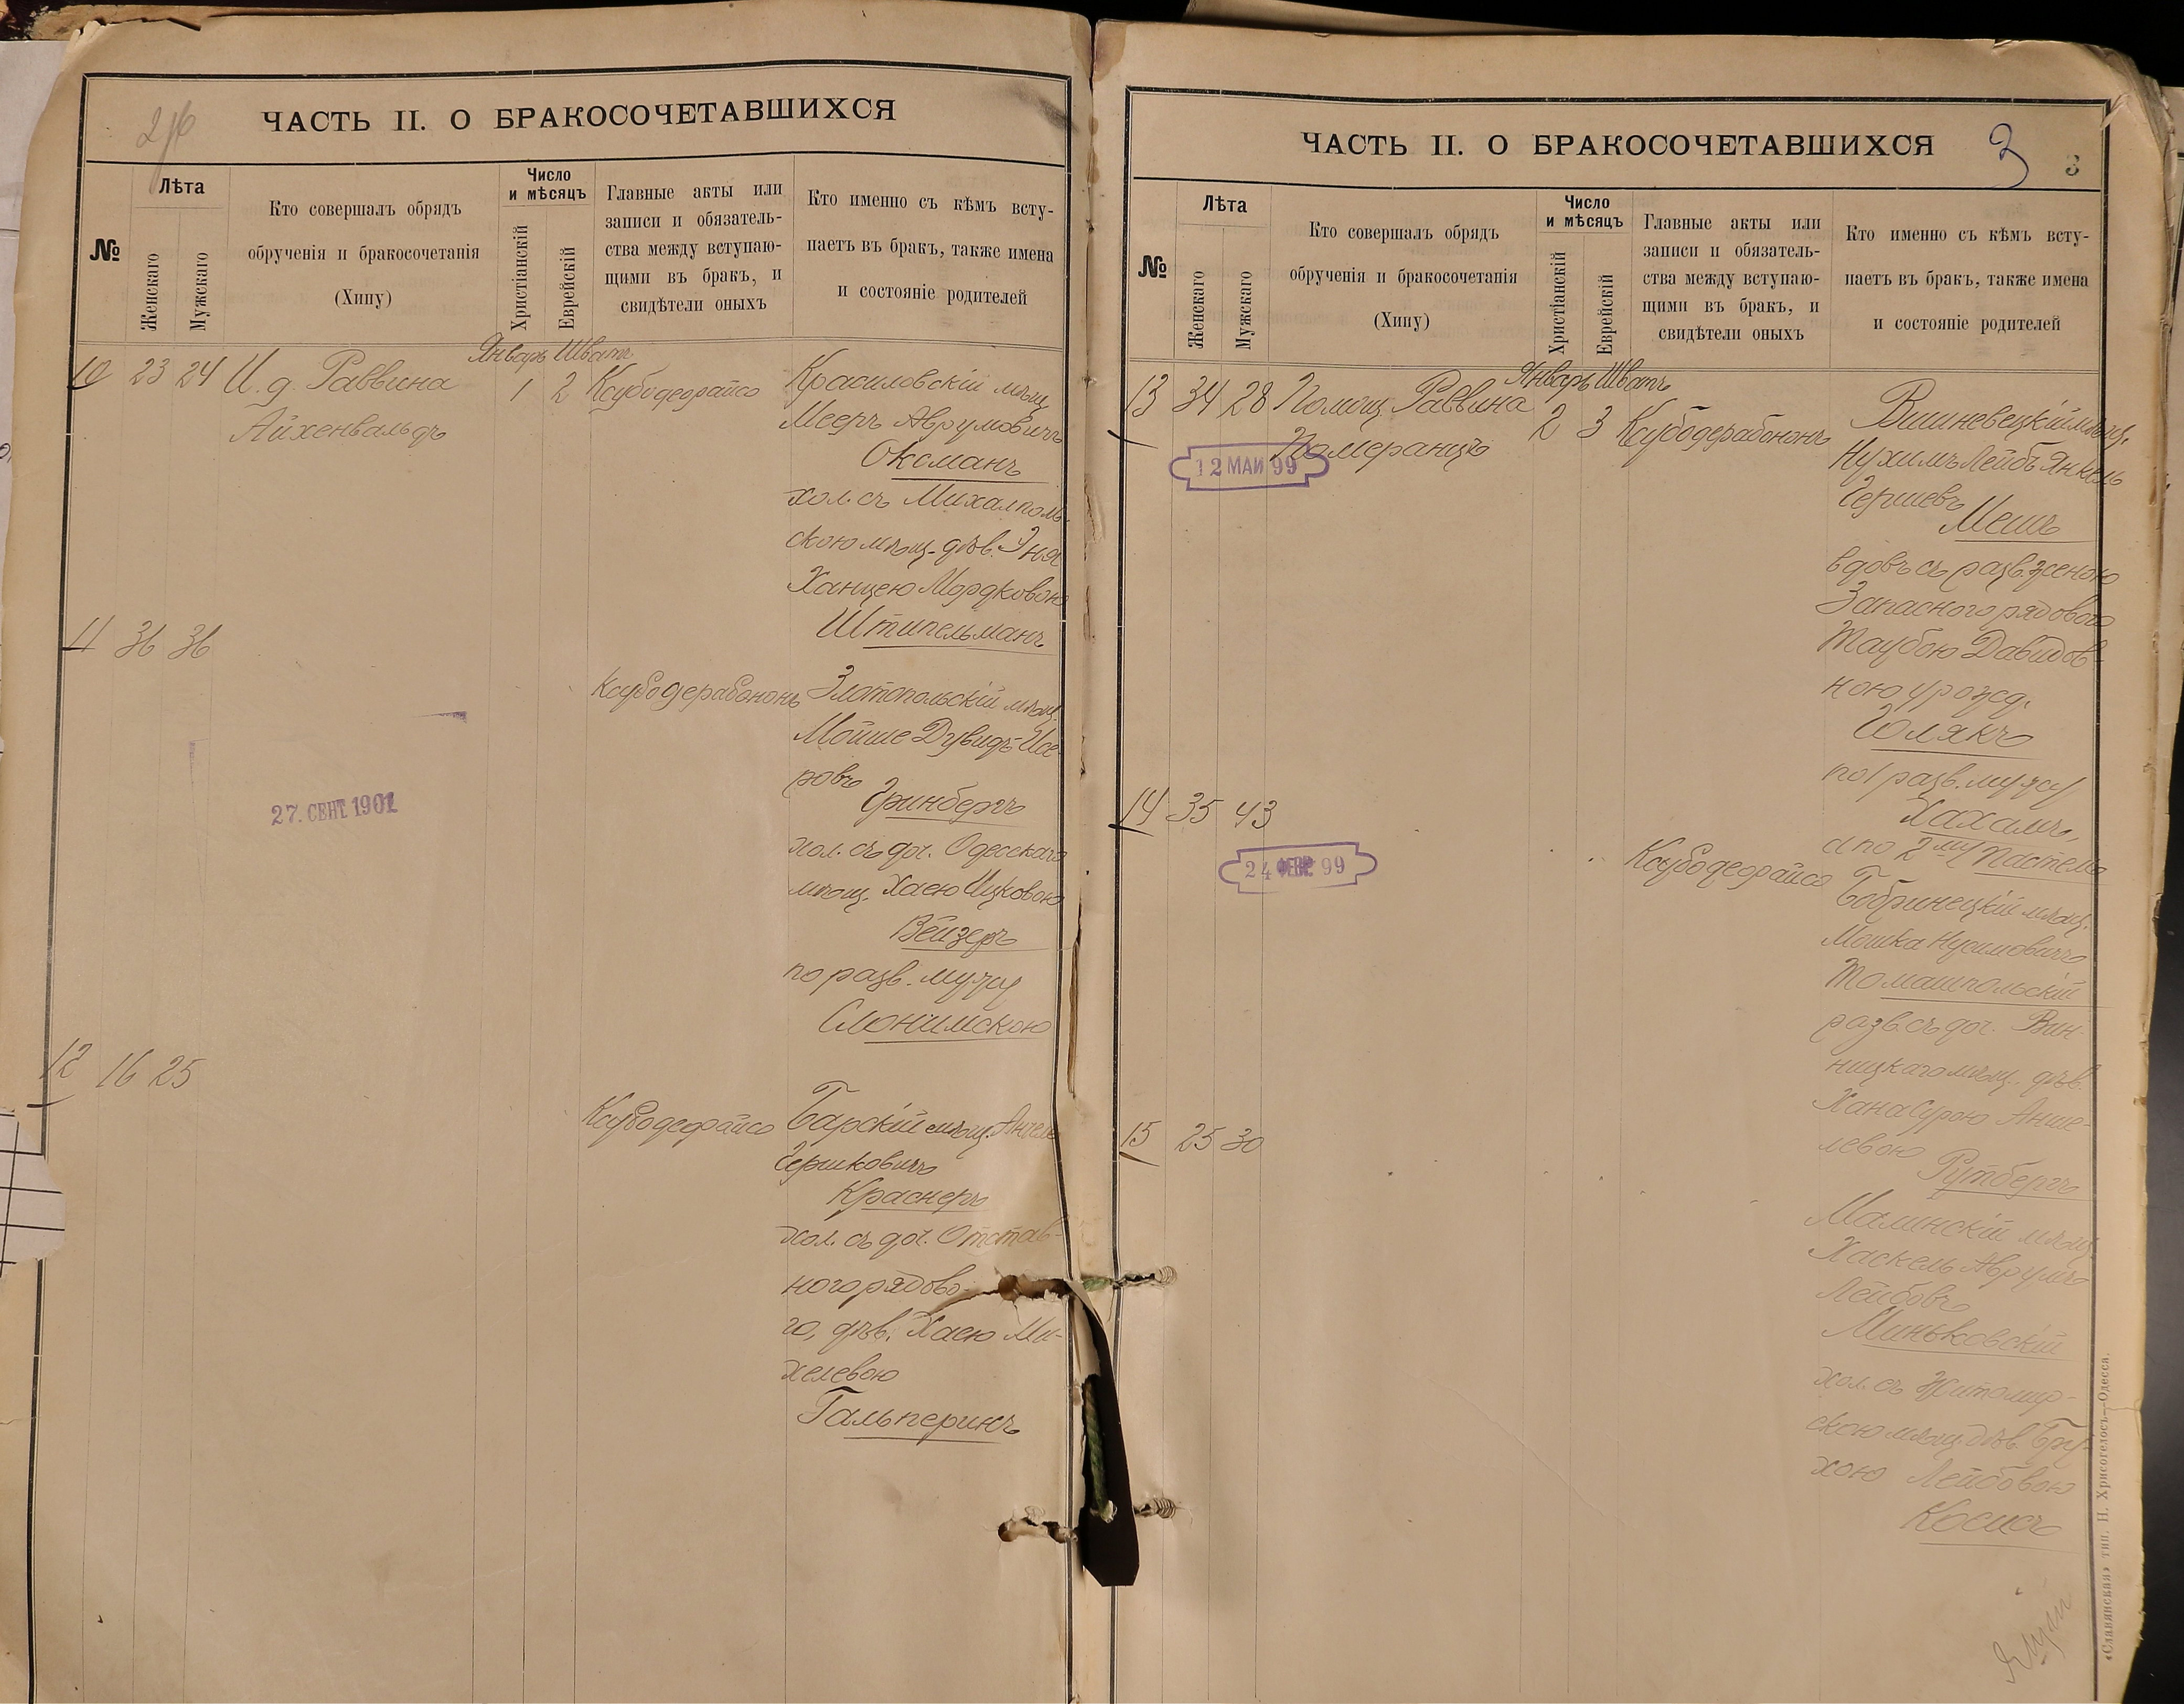 ЧАСТЬ II. О БРАКОСОЧЕТАВШИХСЯ
№
Лѣта
Женскаго
Мужскаго
Кто совершалъ обрядъ
обрученія и бракосочетанія
(Хипу)
Число
и мѣсяцъ
Христіанскій
Еврейскій
Главные акты или
записи и обязатель-
ства между вступаю-
щими въ бракъ, и
свидѣтели оныхъ
Кто именно съ кѣмъ всту-
паетъ въ бракъ, также имена
и состояніе родителей
Январь Шватъ
10 23 24 И. д. Раввина
Айхенвальдъ
1 2 Ксубодеорайсо
Красиловскій мѣщ.
Мееръ Аврумовичъ
Оксманъ
хол. съ Михалполь-
скою мѣщ. дѣв. Эня
Ханцею Мордковою
Штипельманъ
11 36 36
Ксубодерабононъ
Златопольскій мѣщ.
Мойше Дувидъ Исе-
ровъ
Гринбергъ
хол. съ доч. Одесскаго
мѣщ. Хаею Ицковою
Вейзеръ
по разв. мужу
Слонимскою
27. СЕНТ. 1901
12 16 25
Ксубодеорайсо
Барскій мѣщ.
Гершковичъ
Краснеръ
хол. съ доч. Отстав-
ного рядово-
го, дѣв. Хаею Ми-
хелевою
Гальперинъ
ЧАСТЬ II. О БРАКОСОЧЕТАВШИХСЯ
3
3
№
Лѣта
Женскаго
Мужскаго
Кто совершалъ обрядъ
обрученія и бракосочетанія
(Хипу)
Число
и мѣсяцъ
Христіанскій
Еврейскій
Главные акты или
записи и обязатель-
ства между вступаю-
щими въ бракъ, и
свидѣтели оныхъ
Кто именно съ кѣмъ всту-
паетъ въ бракъ, также имена
и состояніе родителей
Январь Шватъ
13 34 28 Помощ. Раввина
Померанцъ
2 3 Ксубодерабононъ
12 МАИ 99
Вишневецкій мѣщ.
Нухимъ Лейбъ Янкель
Гершевъ
Мешъ
вдовъ съ разв. женою
Запаснаго рядового
Таубою Давидов-
ною урожд.
Полякъ
по 1 разв. мужу
Хахамъ,
а по 2му Пастель
14 35 43
24 ФЕВР. 99
Ксубодеорайсо
Бобринецкій мѣщ.
Мошка Нусимовичъ
Томашпольскій
разв. съ доч. Вин-
ницкаго мѣщ. дѣв.
Хана Сурою Анше-
левою
Рутбергъ
15 25 30
Малинскій мѣщ.
Хаскель Аврумъ
Лейбовъ
Миньковскій
хол. съ Житомир-
скою мѣщ. дѣв. Бру-
хою Лейбовою
Косисъ
«Славянская» тип. Н. Хрисогелосъ—Одесса.